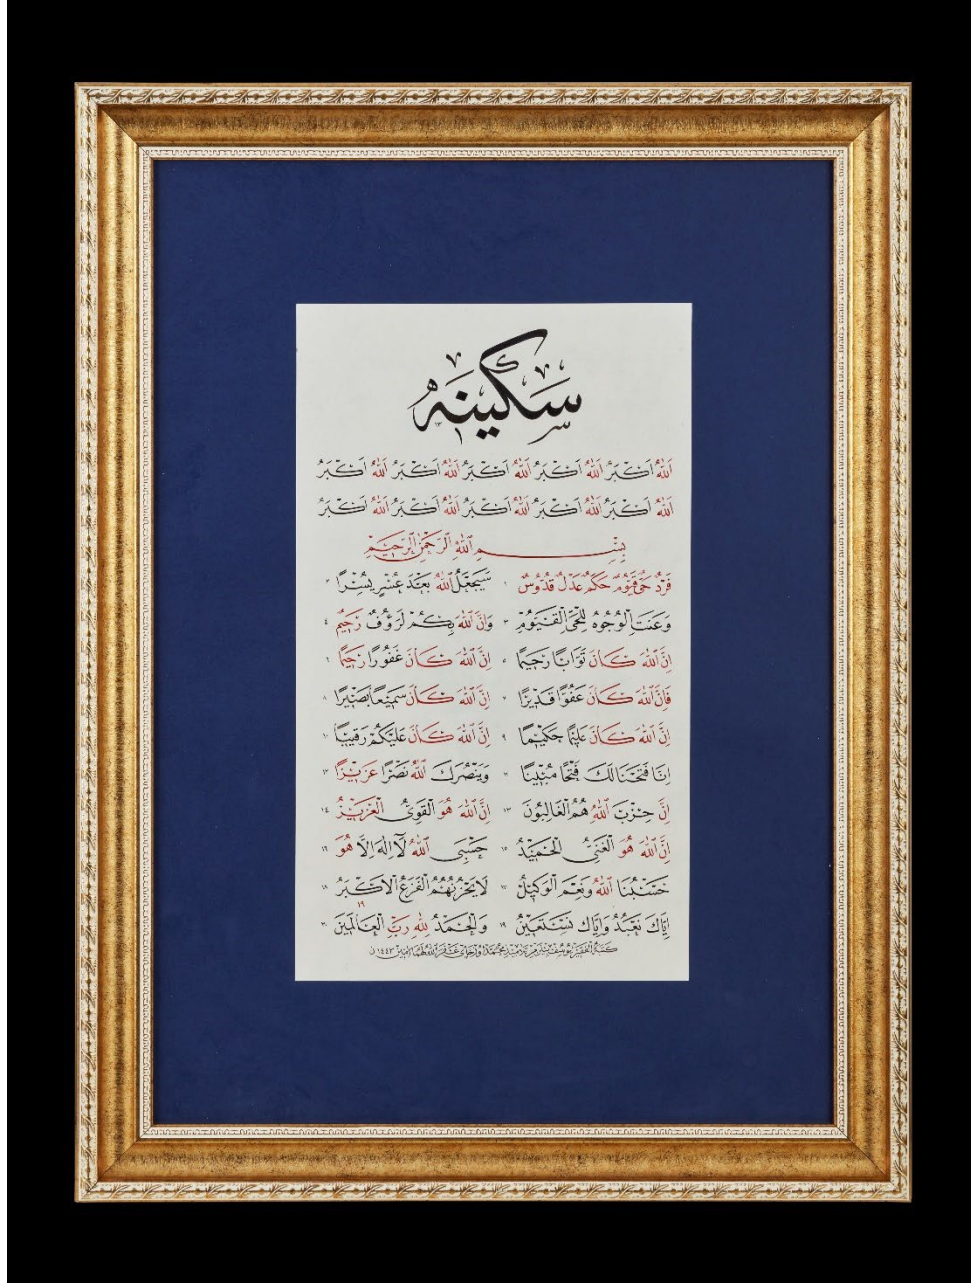 سَكِينَه
اَللّٰهُ اَكْبَرُ اَللّٰهُ اَكْبَرُ اَللّٰهُ اَكْبَرُ اَللّٰهُ اَكْبَرُ اَللّٰهُ اَكْبَرُ
اَللّٰهُ اَكْبَرُ اَللّٰهُ اَكْبَرُ اَللّٰهُ اَكْبَرُ اَللّٰهُ اَكْبَرُ اَللّٰهُ اَكْبَرُ
بِسْمِ اللّٰهِ الرَّحْمٰنِ الرَّحِيمِ
فَرْدٌ حَىٌّ قَيُّومٌ حَكَمٌ عَدْلٌ قُدُّوسٌ ١ سَيَجْعَلُ اللّٰهُ بَعْدَ عُسْرٍ يُسْرًا ٢
وَعَنَتِ الْوُجُوهُ لِلْحَىِّ الْقَيُّومِ ٣ وَاِنَّ اللّٰهَ بِكُمْ لَرَؤُفٌ رَحِيمٌ ٤
اِنَّ اللّٰهَ كَانَ تَوَّابًا رَحِيمًا ٥ اِنَّ اللّٰهَ كَانَ غَفُورًا رَحِيمًا ٦
فَاِنَّ اللّٰهَ كَانَ عَفُوًّا قَدِيرًا ٧ اِنَّ اللّٰهَ كَانَ سَمِيعًا بَصِيرًا ٨
اِنَّ اللّٰهَ كَانَ عَلِيمًا حَكِيمًا ٩ اِنَّ اللّٰهَ كَانَ عَلَيْكُمْ رَقِيبًا ١٠
اِنَّا فَتَحْنَا لَكَ فَتْحًا مُبِينًا ١١ وَيَنْصُرَكَ اللّٰهُ نَصْرًا عَزِيزًا ١٢
اِنَّ حِزْبَ اللّٰهِ هُمُ الْغَالِبُونَ ١٣ اِنَّ اللّٰهَ هُوَ الْقَوِىُّ الْعَزِيزُ ١٤
اِنَّ اللّٰهَ هُوَ الْغَنِىُّ الْحَمِيدُ ١٥ حَسْبِىَ اللّٰهُ لَٓا اِلٰهَ اِلَّا هُوَ ١٦
حَسْبُنَا اللّٰهُ وَنِعْمَ الْوَكِيلُ ١٧ لَا يَحْزُنُهُمُ الْفَزَعُ الْاَكْبَرُ ١٨
١٩
اِيَّاكَ نَعْبُدُ وَاِيَّاكَ نَسْتَعِينُ ١٩ وَالْحَمْدُ لِلّٰهِ رَبِّ الْعَالَمِينَ ٢٠
كتبه الفقير يوسف من تلاميذ غفر الله آمين ١٤٤٣